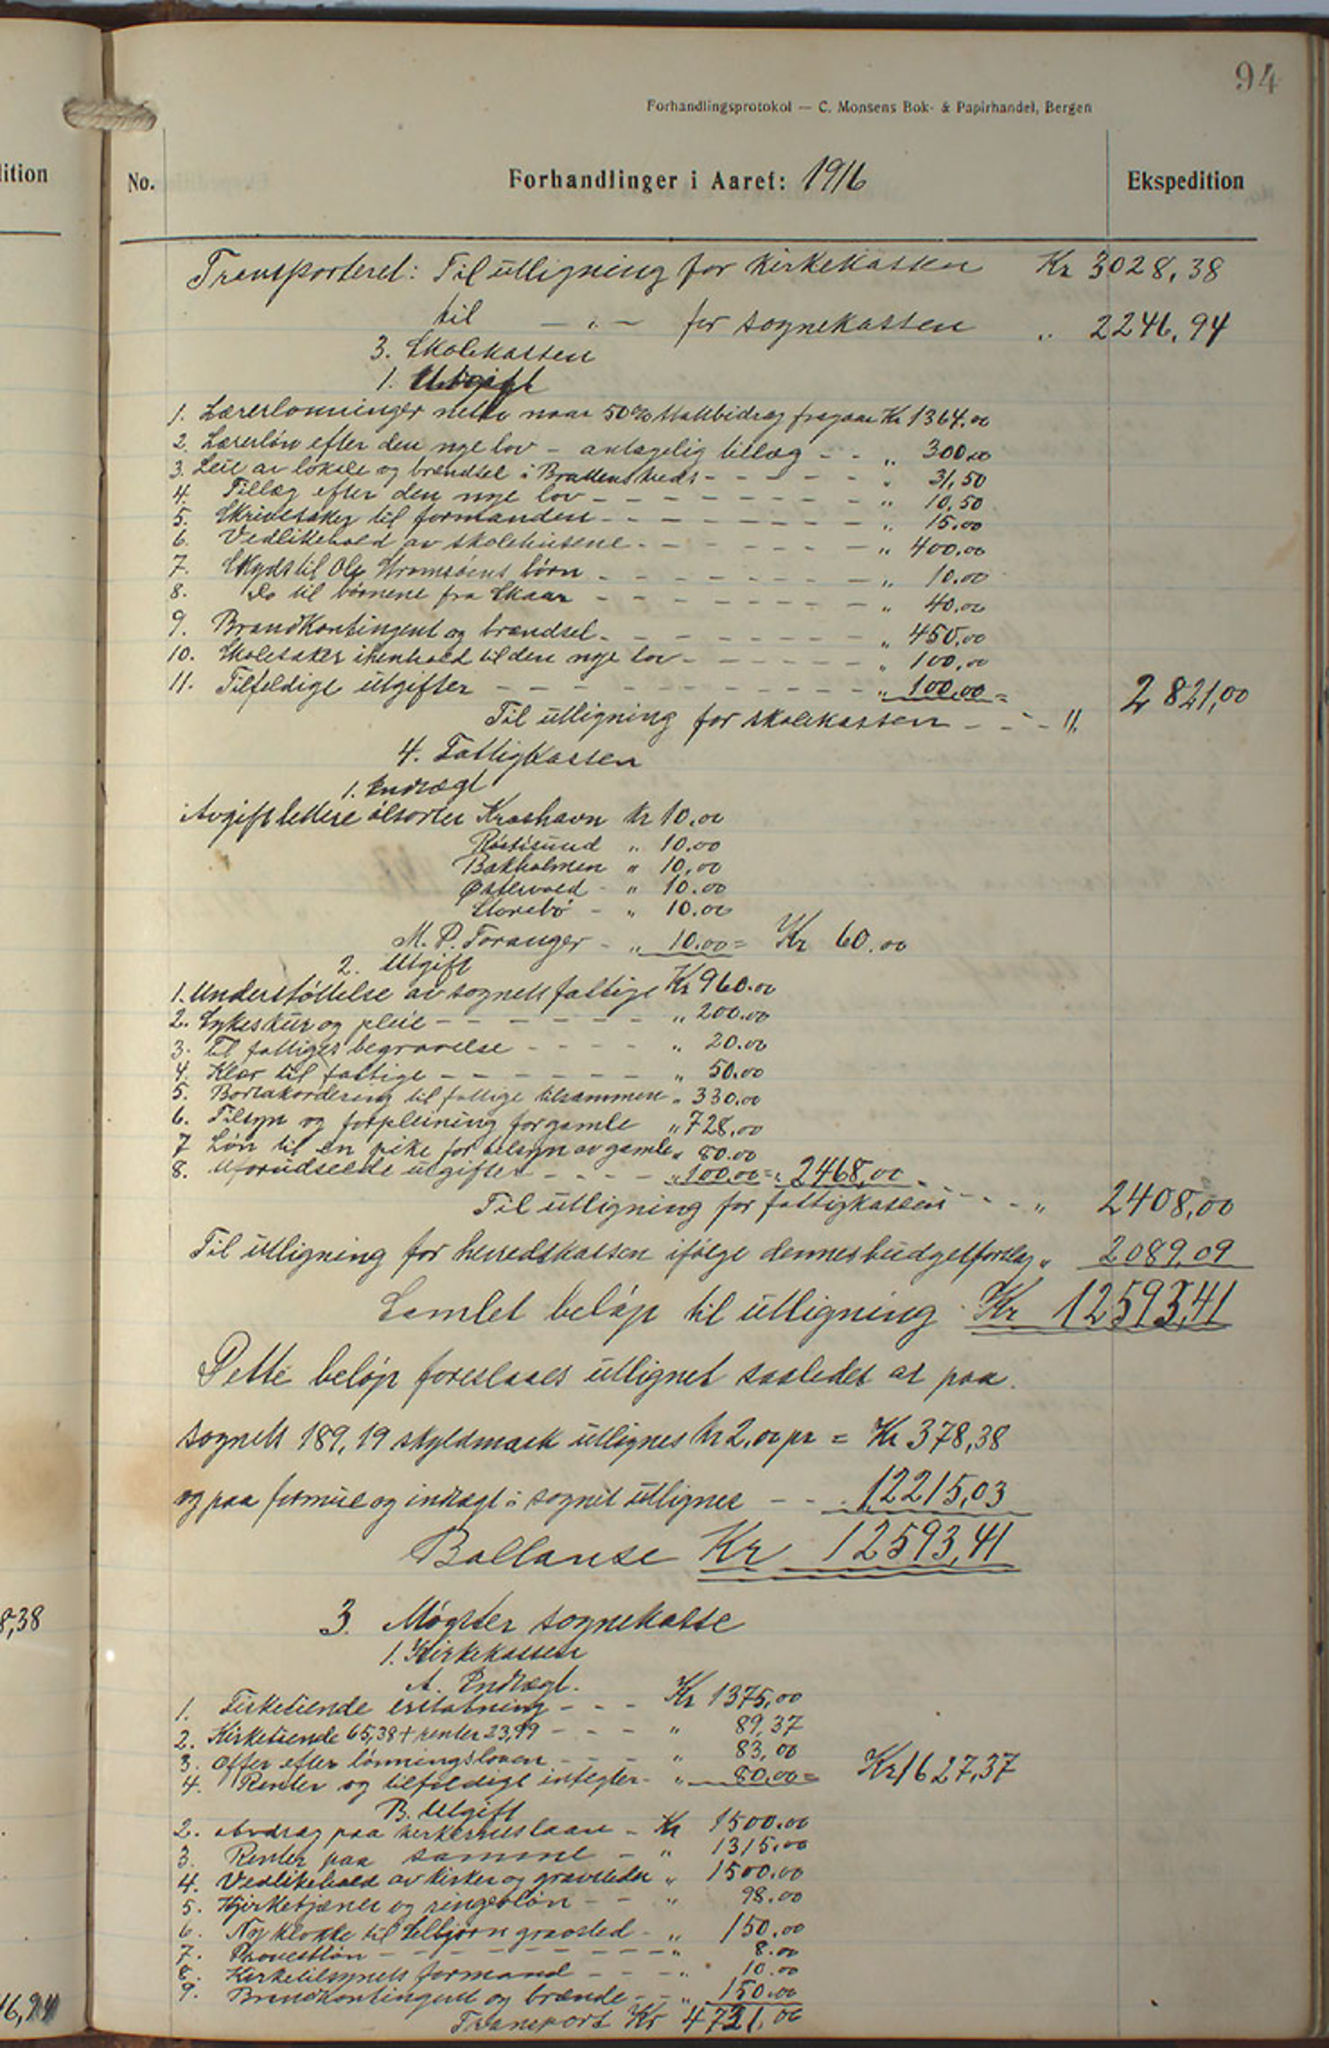 94
Forhandlingsprotokol — C. Monsens Bok- & Papirhandel, Bergen
lition
No. Forhandlinger i Aaret: 1916 Ekspedition
Transporteret: Til utligning for Kirkekassen Kr 3028,38
til —„— for sognekassen „ 2246,94
3. Skolekassen
1. Utgift
1. Lærerlønninger netto naar 50% statsbidrag fragaar Kr 1364.00
2. Lærerløn efter den nye lov - antagelig tillæg - - „ 300.00
3. Leie av lokale og brændsel i - - - - - „ 31,50
4. Tillæg efter den nye lov - - - - - - - - „ 10,50
5. Skrivesaker til formanden - - - - - - - „ 15.00
6. Vedlikehold av skolehusene - - - - - - - „ 400.00
7. Skyds til Ole Stromsøens børn - - - - - - - „ 10.00
8. Do til børnene fra Skaar - - - - - - - „ 40.00
9. Brandkontingent og brændsel - - - - - - - „ 450,00
10. Skolesaker ihenhold til den nye lov - - - - - - „ 100,00
11. Tilfeldige utgifter - - - - - - - - - - „ 100,00 =
Til utligning for skolekassen - - - „ 2821,00
4. Fattigkassen
1. Indtægt
Avgift lettere ølsorter Kr 10.00
„ 10.00
Bakholmen „ 10,00
Østervold - „ 10.00
Storebø - „ 10.00
M. P. Foranger - „ 10.00 = Kr 60.00
2. Utgift
1. Understøttelse av sognets fattige Kr 960.00
2. Sykeskur og pleie - - - - - - „ 200.00
3. til fattiges begravelse - - - - „ 20.00
4. Klær til fattige - - - - - - „ 50.00
5. Bortakordering til fattige tilsammen „ 330.00
6. Tilsyn og forpleining for gamle „ 728,00
7 Løn til en pike for tilsyn av gamle „ 80.00
8. Uforudseede utgifter - - - - „ 100,00 = „ 2468,00
Til utligning for fattigkassen - - - „ 2408,00
Til utligning for herredskassen ifølge dennes budgetforslag „ 2089,09
Samlet beløp til utligning Kr 12593,41
Dette beløp foreslaaes utlignet saaledes at paa
sognets 189,19 skyldmark utlignes kr 2,00 pr = Kr 378,38
og paa formue og indtægt i sognet utlignes - - 12215,03
Ballanse Kr 12593,41
8,38
3. Møgster sognekasse
1. Kirkekassen
A. Indtægt.
1. Fisketiende erstatning - - - Kr 1375,00
2. Kirketiende 65,38 + renter 23,99 - - - „ 89,37
3. Offer efter lønningsloven - - - „ 83,00
4. Renter og tilfeldige integter - „ 80,00 = Kr 1627,37
B. Utgift
2. Avdrag paa - Kr 1500.00
3. Renter paa samme - „ 1315,00
4. Vedlikehold av kirker og gravsteder „ 1500.00
5. Kjirketjener og ringerløn - - „ 98.00
6. Ny klokke til Selbjørn gravsted - „ 150.00
7. Provestløn - - - - - - - - „ 8.00
8. Kirketilsynets formand - - - „ 10.00
9. Brandkontingent og brænde - - „ 150.00
16,94
Transport Kr 4731,00